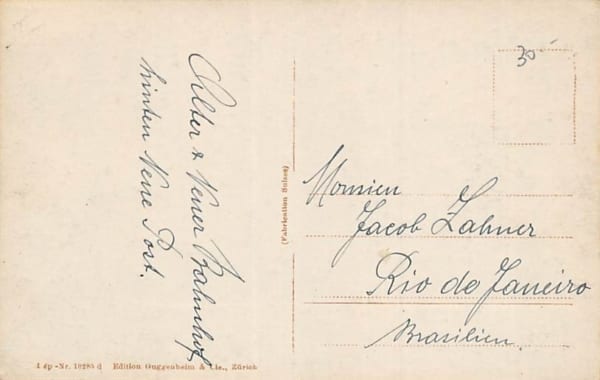 Alter & Neuer Bahnhof
hinten Neue Post.
30
(Fabrication Suisse)
Monsieu
Jacob Zahner
Rio de Janeiro
Brasilien.
Edition Guggenheim & Cie., Zürich